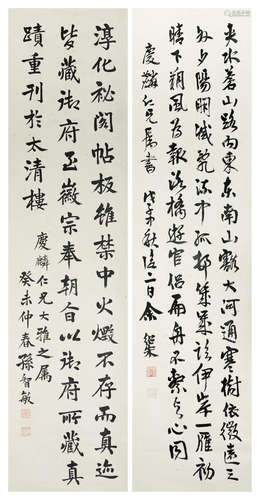 夾水蒼山路向東東南山豁大河通寒樹依微遠天
外夕陽明滅亂流中孤邨幾歲臨伊岸一雁初
晴下朔風為報洛橋遊宦侶扁舟不繫與心同
慶麟仁兄屬書
淳化祕閣帖板雖禁中火燬不存而真迹
皆藏御府至徽宗奉朝旨以御府所藏真
蹟重刊於太清樓
慶麟仁兄大雅之屬
癸未仲春孫智敏